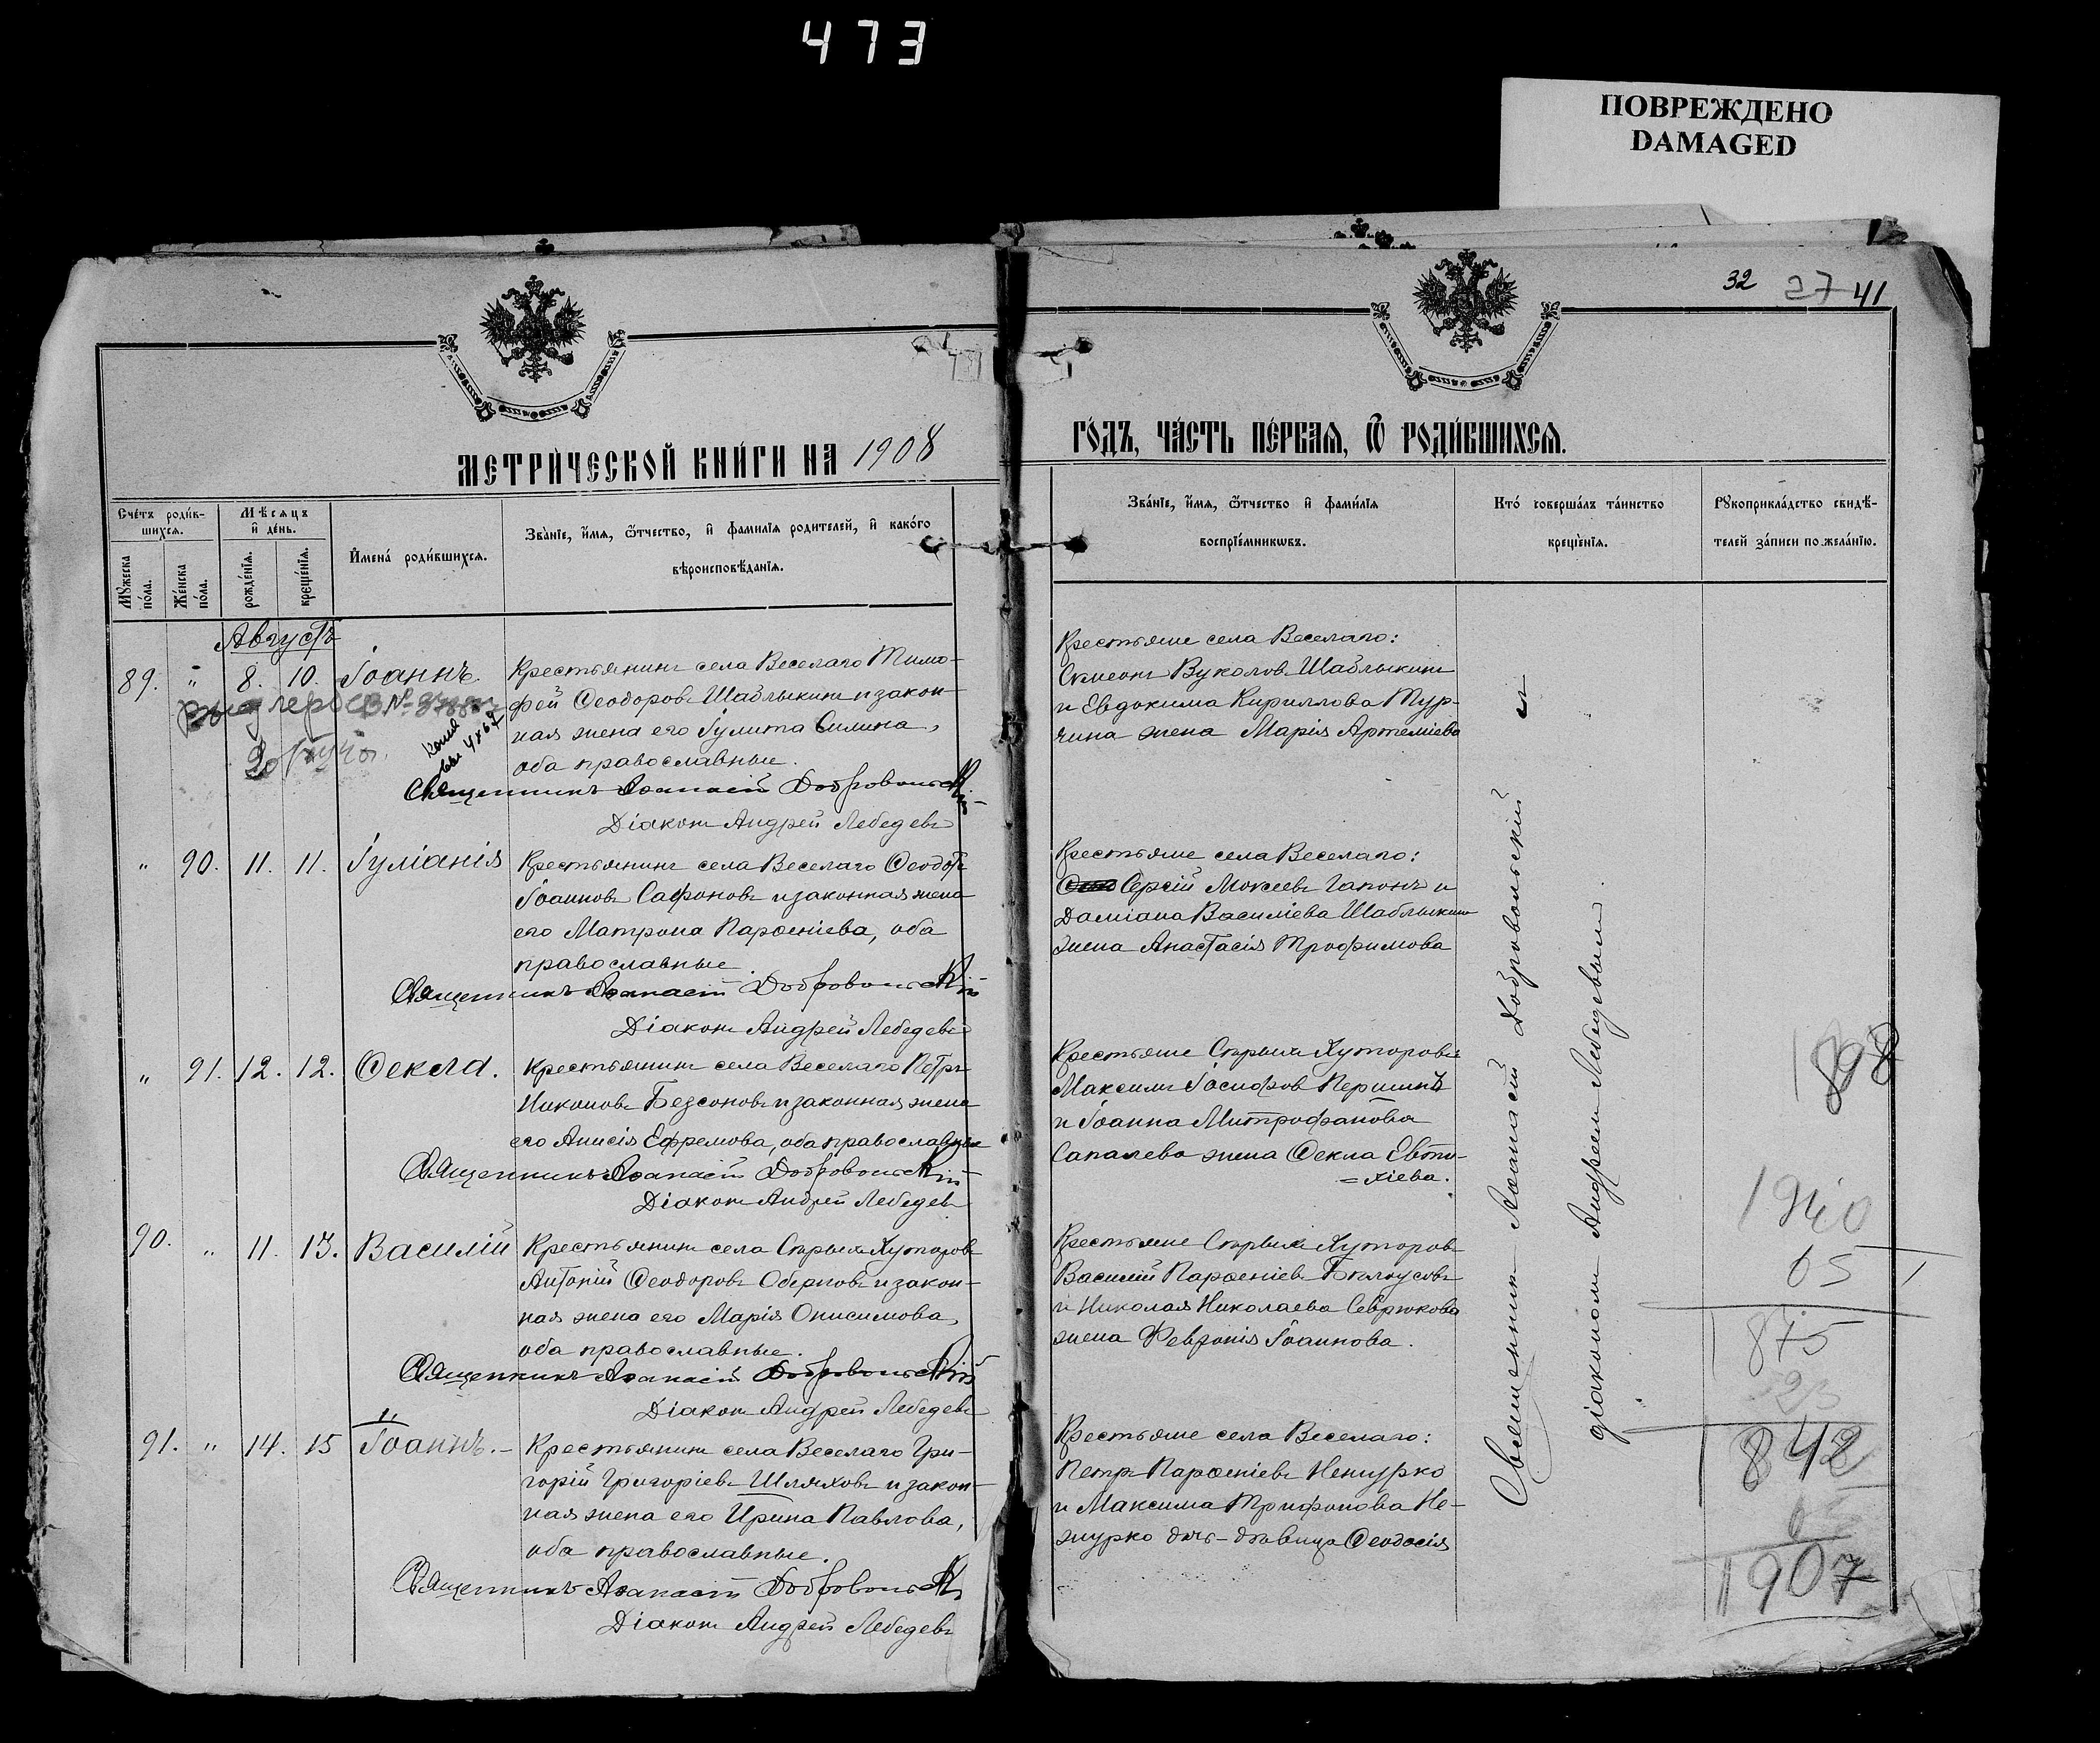 473
ПОВРЕЖДЕНО
DAMAGED
32 27 41
МЕТРИЧЕСКОЙ КНИГИ НА 1908
ГОДЪ, ЧАСТЬ ПЕРВАЯ, Ѿ РОДИВШИХСЯ.
Счетъ родившихся.
Мужеска пола.
Женска пола.
Мѣсяцъ и день.
рожденія.
крещенія.
Имена родившихся.
Званіе, имя, ѿчество, и фамилія родителей, и какого
вѣроисповѣданія.
Званіе, имя, ѿчество и фамилія
воспріемниковъ.
Кто совершалъ таинство
крещенія.
Рукоприкладство свидѣ-
телей записи по желанію.
Августъ
89. " 8. 10. Іоаннъ.
Крестьянинъ села Веселаго Тимо-
фей Ѳеодоровъ Шаблыкинъ и закон-
ная жена его Іулита Силина,
оба православные.
Священникъ Аѳанасій Добровольскій
Діаконъ Андрей Лебедевъ
Крестьяне села Веселаго:
Симеонъ Вуколовъ Шаблыкинъ
и Евдокима Кириллова Тур-
чина жена Марія Артеміева
" 90. 11. 11. Іуліанія
Крестьянинъ села Веселаго Ѳеодоръ
Іоанновъ Сафоновъ и законная жена
его Матрона Парѳеніева, оба
православные.
Священникъ Аѳанасій Добровольскій
Діаконъ Андрей Лебедевъ
Крестьяне села Веселаго:
Сергій Моисеевъ Гапонъ и
Даміана Василіева Шаблыкина
жена Анастасія Трофимова
" 91. 12. 12. Ѳекла.
Крестьянинъ села Веселаго Петръ
Никоновъ Безсоновъ и законная жена
его Анисія Ефремова, оба православные
Священникъ Аѳанасій Добровольскій
Діаконъ Андрей Лебедевъ
Крестьяне Старыхъ Хуторовъ
Максимъ Іосифовъ
и Іоанна Митрофанова
Сапалева жена Ѳекла Евти-
=хіева.
90. " 11. 13. Василій
Крестьянинъ села Старыхъ Хуторовъ
Антоній Ѳеодоровъ и закон-
ная жена его Марія Онисимова,
оба православные.
Священникъ Аѳанасій Добровольскій
Діаконъ Андрей Лебедевъ
Крестьяне Старыхъ Хуторовъ
Василій Парѳеніевъ Бѣлоусовъ
и Николая Николаева Севрюкова
жена Февронія Іоаннова.
91. " 14. 15 Іоаннъ.
Крестьянинъ села Веселаго Гри-
горій Григоріевъ Шляховъ и закон-
ная жена его Ирина Павлова,
оба православные.
Священникъ Аѳанасій Добровольскій
Діаконъ Андрей Лебедевъ
Крестьяне села Веселаго:
Петръ Парѳеніевъ Нежурко
и Максима Трифонова Не-
журко дочь-дѣвица Ѳеодосія
Священникъ Аѳанасій Добровольскій съ
діакономъ Андреемъ Лебедевымъ.
1898
1940
65
1875
23
1842
65
1907